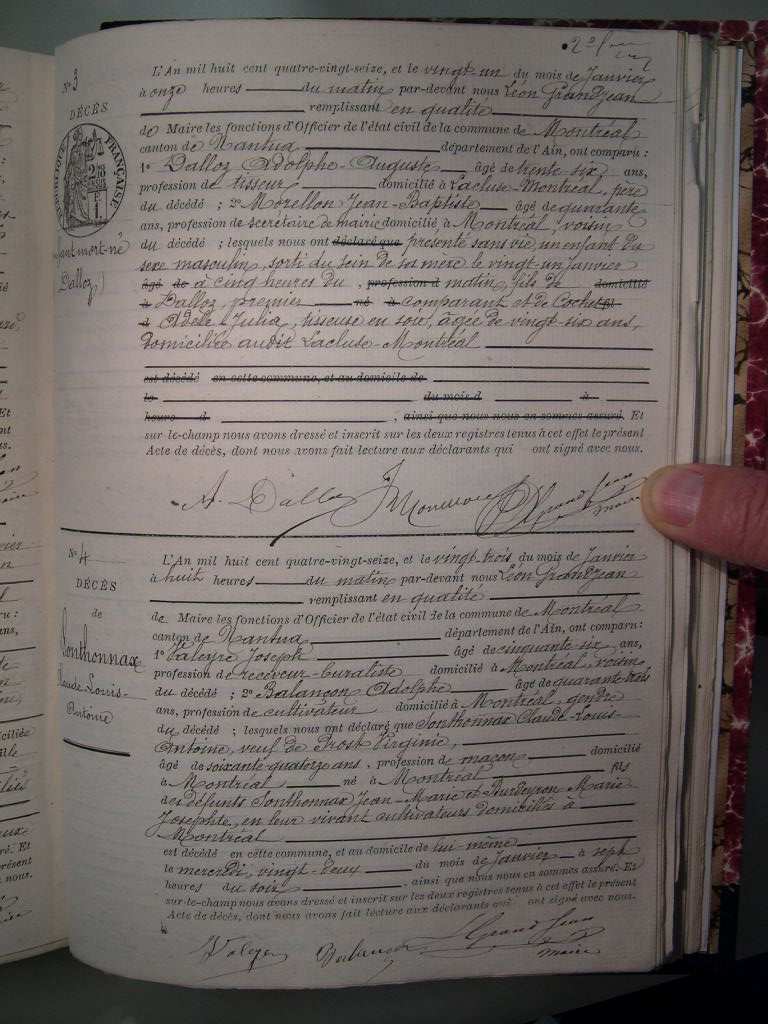 Nº 3
DÉCÈS
RÉPUBLIQUE FRANÇAISE
enfant mort-né
Dalloz)
L'An mil huit cent quatre-vingt-seize, et le vingt un du mois de Janvier
à onze heures du matin par-devant nous Léon Grandjean
remplissant en qualité
de Maire les fonctions d'Officier de l'état civil de la commune de Montréal
canton de Nantua département de l'Ain, ont comparu :
1º Dalloz Adolphe-Auguste âgé de trente six ans,
profession de tisseur domicilié à Lacluse-Montréal, père
du décédé ; 2º Morellon Jean-Baptiste âgé de quarante
ans, profession de secrétaire de mairie domicilié à Montréal, voisin
du décédé ; lesquels nous ont déclaré que présenté sans vie, un enfant du
sexe masculin, sorti du sein de sa mère le vingt-un janvier
âgé de à cinq heures du , profession d matin, fils de domicilié
à Dalloz, premier né à comparant et de Cochet
d Adèle Julia, tisseuse en soie, âgée de vingt-six ans,
domiciliée audit Lacluse-Montréal
est décédé en cette commune, et au domicile de
le du mois d à
heure d , ainsi que nous nous en sommes assuré. Et
sur-le-champ nous avons dressé et inscrit sur les deux registres tenus à cet effet le présent
Acte de décès, dont nous avons fait lecture aux déclarants qui ont signé avec nous.
A. Dalloz Grand Jean
maire
Nº 4
DÉCÈS
de
Sonthonnax
Claude-Louis-
Antoine
L'An mil huit cent quatre-vingt-seize, et le vingt-trois du mois de Janvier
à huit heures du matin par-devant nous Léon Grandjean
remplissant en qualité
de Maire les fonctions d'Officier de l'état civil de la commune de Montréal
canton de Nantua département de l'Ain, ont comparu :
1º Valeyre Joseph âgé de cinquante-six ans,
profession de receveur-buraliste domicilié à Montréal, voisin
du décédé ; 2º Balançon Adolphe âgé de quarante-trois
ans, profession de cultivateur domicilié à Montréal, gendre
du décédé ; lesquels nous ont déclaré que Sonthonnax Claude-Louis-
Antoine, veuf de Prost Virginie,
âgé de soixante-quatorze ans, profession de maçon domicilié
à Montréal né à Montréal fils
des défunts Sonthonnax Jean-Marie et Burdeyron Marie
Josephte, en leur vivant cultivateurs domiciliés à
Montréal
est décédé en cette commune, et au domicile de lui-même
le mercredi, vingt-deux du mois de janvier à sept
heures du soir , ainsi que nous nous en sommes assuré. Et
sur-le-champ nous avons dressé et inscrit sur les deux registres tenus à cet effet le présent
Acte de décès, dont nous avons fait lecture aux déclarants qui ont signé avec nous.
Valeyre Balançon Grand Jean
maire